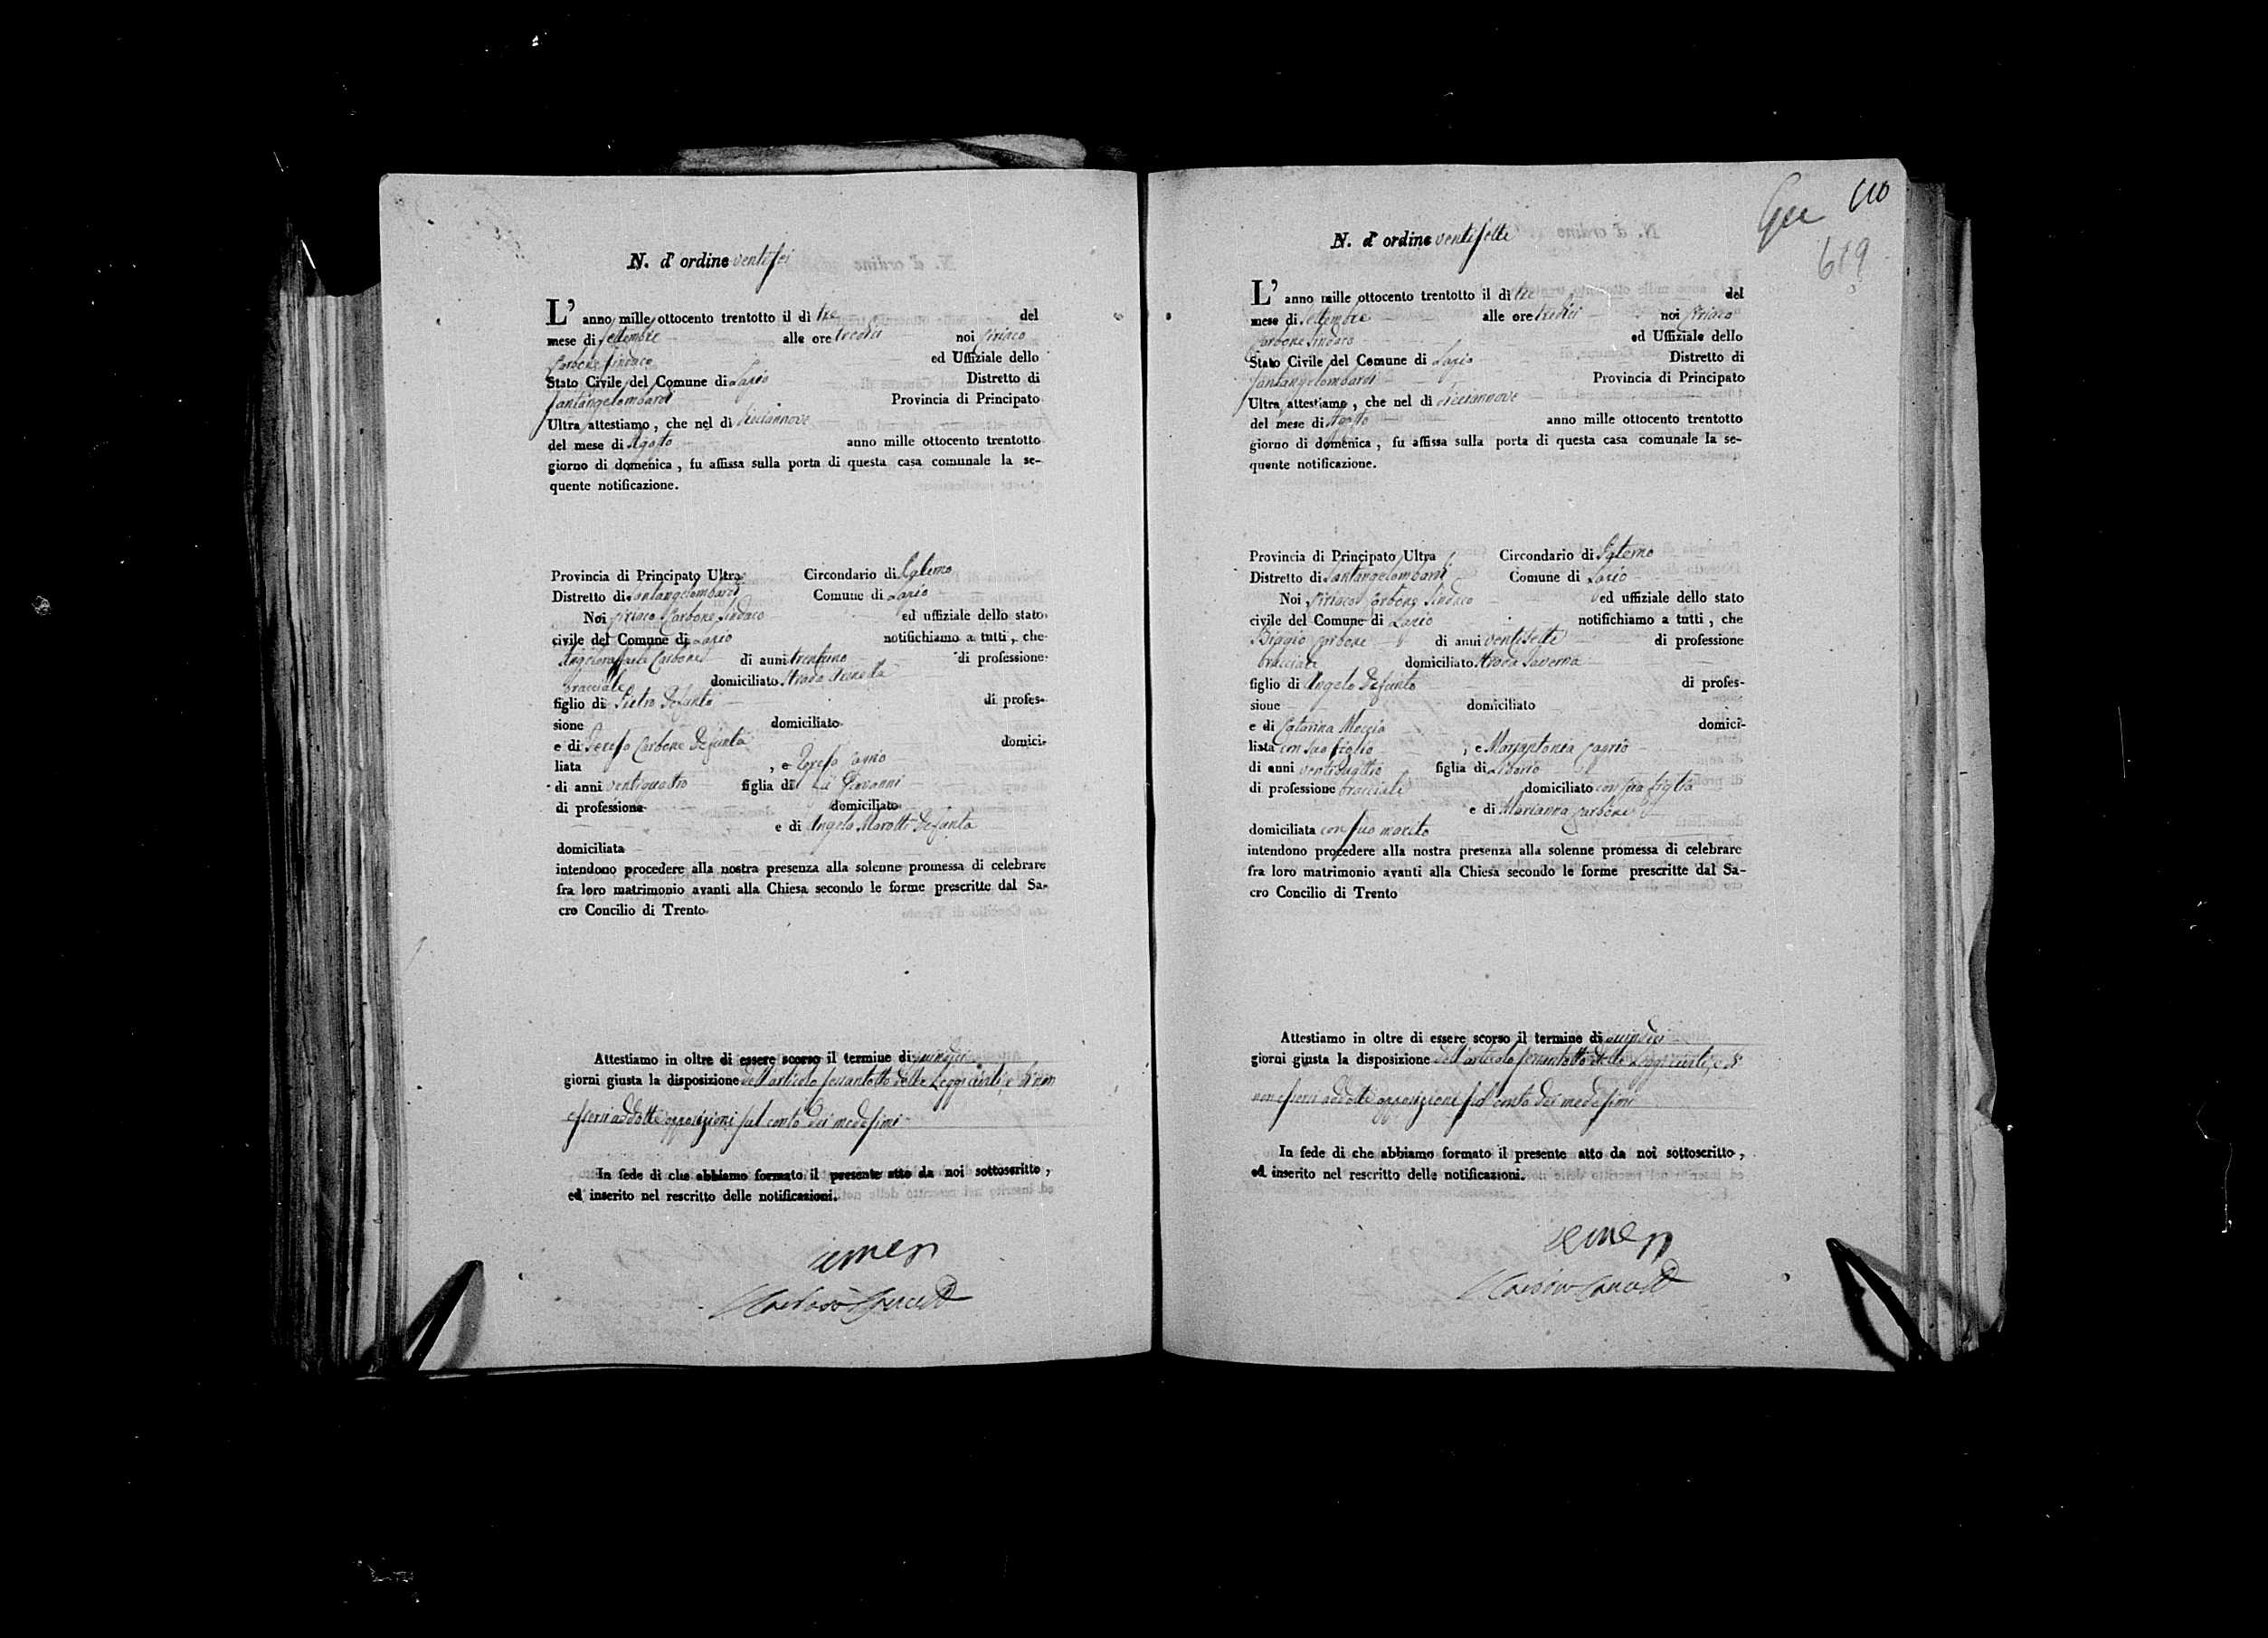 N. d' ordine ventisei
L' anno mille ottocento trentotto il dì tre del
mese di Settembre alle ore tredici noi Ciriaco
Carbone Sindaco ed Uffiziale dello
Stato Civile del Comune di Lapio Distretto di
Santangelombardi Provincia di Principato
Ultra attestiamo, che nel dì diciannove
del mese di Agosto anno mille ottocento trentotto
giorno di domenica, fu affissa sulla porta di questa casa comunale la se-
quente notificazione.
Provincia di Principato Ultra Circondario di Paterno
Distretto di Santangelombardi Comune di Lapio
Noi Ciriaco Carbone Sindaco ed uffiziale dello stato
civile del Comune di Lapio notifichiamo a tutti, che
Angeloraffaele Carbone di anni trentuno di professione
bracciale domiciliato Strada
figlio di Pietro Defunto di profes-
sione domiciliato
e di Teresa Carbone Defunta domici-
liata , e Teresa
di anni ventiquattro figlia di Giovanni
di professione domiciliato
e di Angela Defunta
domiciliata
intendono procedere alla nostra presenza alla solenne promessa di celebrare
fra loro matrimonio avanti alla Chiesa secondo le forme prescritte dal Sa-
cro Concilio di Trento.
Attestiamo in oltre di essere scorso il termine di quindici
giorni giusta la disposizione dell'articolo sessantotto delle Leggi civili, e di non
essersi addotte opposizioni sul conto dei medesimi
In fede di che abbiamo formato il presente atto da noi sottoscritto,
ed inserito nel rescritto delle notificazioni.
110
619
N. d' ordine ventisette
L' anno mille ottocento trentotto il dì tre del
mese di Settembre alle ore tredici noi Ciriaco
Carbone Sindaco ed Uffiziale dello
Stato Civile del Comune di Lapio Distretto di
Santangelombardi Provincia di Principato
Ultra attestiamo, che nel dì diciannove
del mese di Agosto anno mille ottocento trentotto
giorno di domenica, fu affissa sulla porta di questa casa comunale la se-
quente notificazione.
Provincia di Principato Ultra Circondario di Paterno
Distretto di Santangelombardi Comune di Lapio
Noi Ciriaco Carbone Sindaco ed uffiziale dello stato
civile del Comune di Lapio notifichiamo a tutti, che
Biagio Carbone di anni ventisette di professione
bracciale domiciliato Strada Taverna
figlio di Angelo Defunto di profes-
sione domiciliato
e di Catarina Moccia domici-
liata con suo figlio , e Mariantonia
di anni ventiquattro figlia di Liborio
di professione bracciale domiciliato con sua figlia
e di Marianna Carbone
domiciliata con suo marito
intendono procedere alla nostra presenza alla solenne promessa di celebrare
fra loro matrimonio avanti alla Chiesa secondo le forme prescritte dal Sa-
cro Concilio di Trento
Attestiamo in oltre di essere scorso il termine di quindici
giorni giusta la disposizione dell'articolo sessantotto delle Leggi civili, e di
non essersi addotte opposizioni sul conto dei medesimi
In fede di che abbiamo formato il presente atto da noi sottoscritto,
ed inserito nel rescritto delle notificazioni.